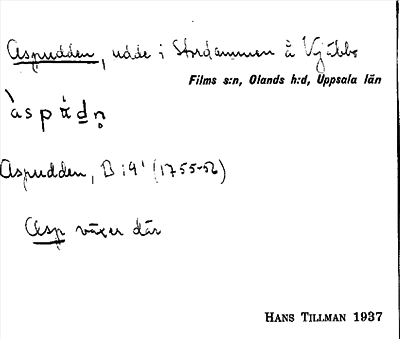 Aspudden, udde i Stordammen å V. Gåbbo
Films s:n, Olands h:d, Uppsala län
Aspudden, B 19¹ (1755-56)
Asp växer där
HANS TILLMAN 1937